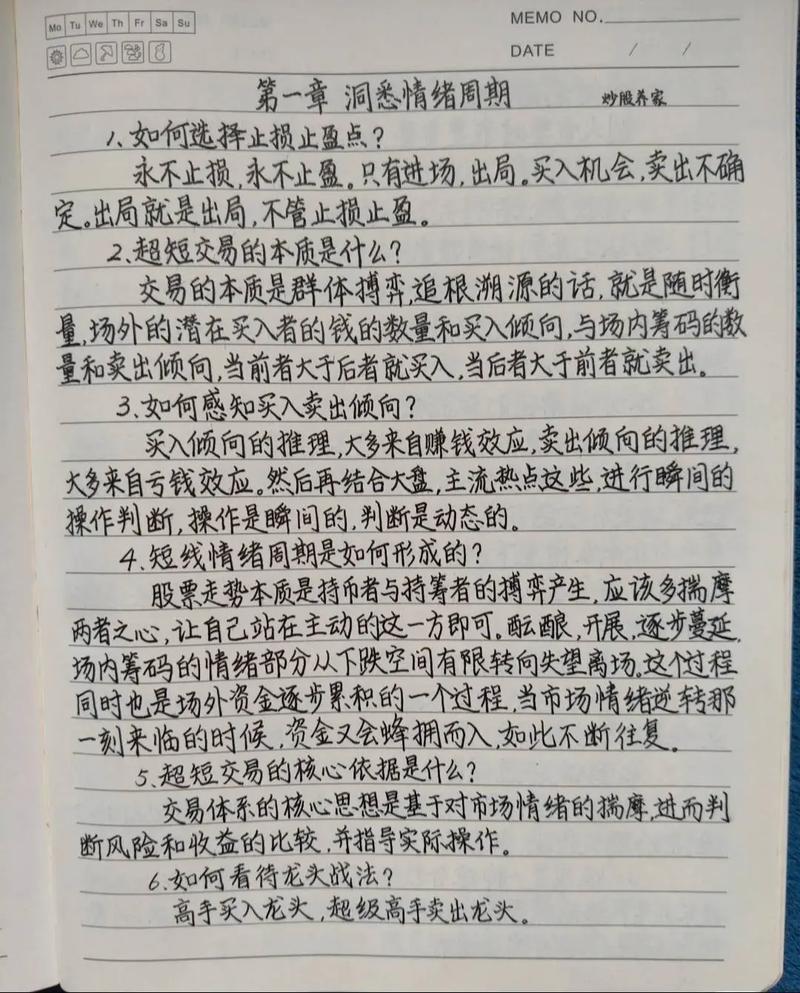 Mo Tu We Th Fr Sa Su
MEMO NO.
DATE / /
第一章 洞悉情绪周期 炒股养家
1、如何选择止损止盈点？
永不止损,永不止盈。只有进场,出局。买入机会,卖出不确
定。出局就是出局,不管止损止盈。
2、超短交易的本质是什么？
交易的本质是群体搏弈,追根溯源的话,就是随时衡
量,场外的潜在买入者的钱的数量和买入倾向,与场内筹码的数
量和卖出倾向,当前者大于后者就买入,当后者大于前者就卖出。
3、如何感知买入卖出倾向？
买入倾向的推理,大多来自赚钱效应,卖出倾向的推理,
大多来自亏钱效应。然后再结合大盘,主流热点这些,进行瞬间的
操作判断,操作是瞬间的,判断是动态的。
4、短线情绪周期是如何形成的？
股票走势本质是持币者与持筹者的搏弈产生,应该多揣摩
两者之心,让自己站在主动的这一方即可。酝酿,开展,逐步蔓延,
场内筹码的情绪部分从下跌空间有限转向失望离场。这个过程
同时也是场外资金逐步累积的一个过程,当市场情绪逆转那
一刻来临的时候,资金又会蜂拥而入,如此不断往复。
5、超短交易的核心依据是什么？
交易体系的核心思想是基于对市场情绪的揣摩,进而判
断风险和收益的比较,并指导实际操作。
6、如何看待龙头战法？
高手买入龙头,超级高手卖出龙头。